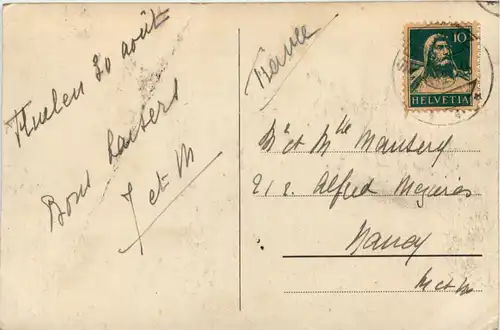 Fluelen 20 août
Bons baisers
J et M
France
10
HELVETIA
Mr et Mlle
212. Alfred Mézières
Nancy
M et M